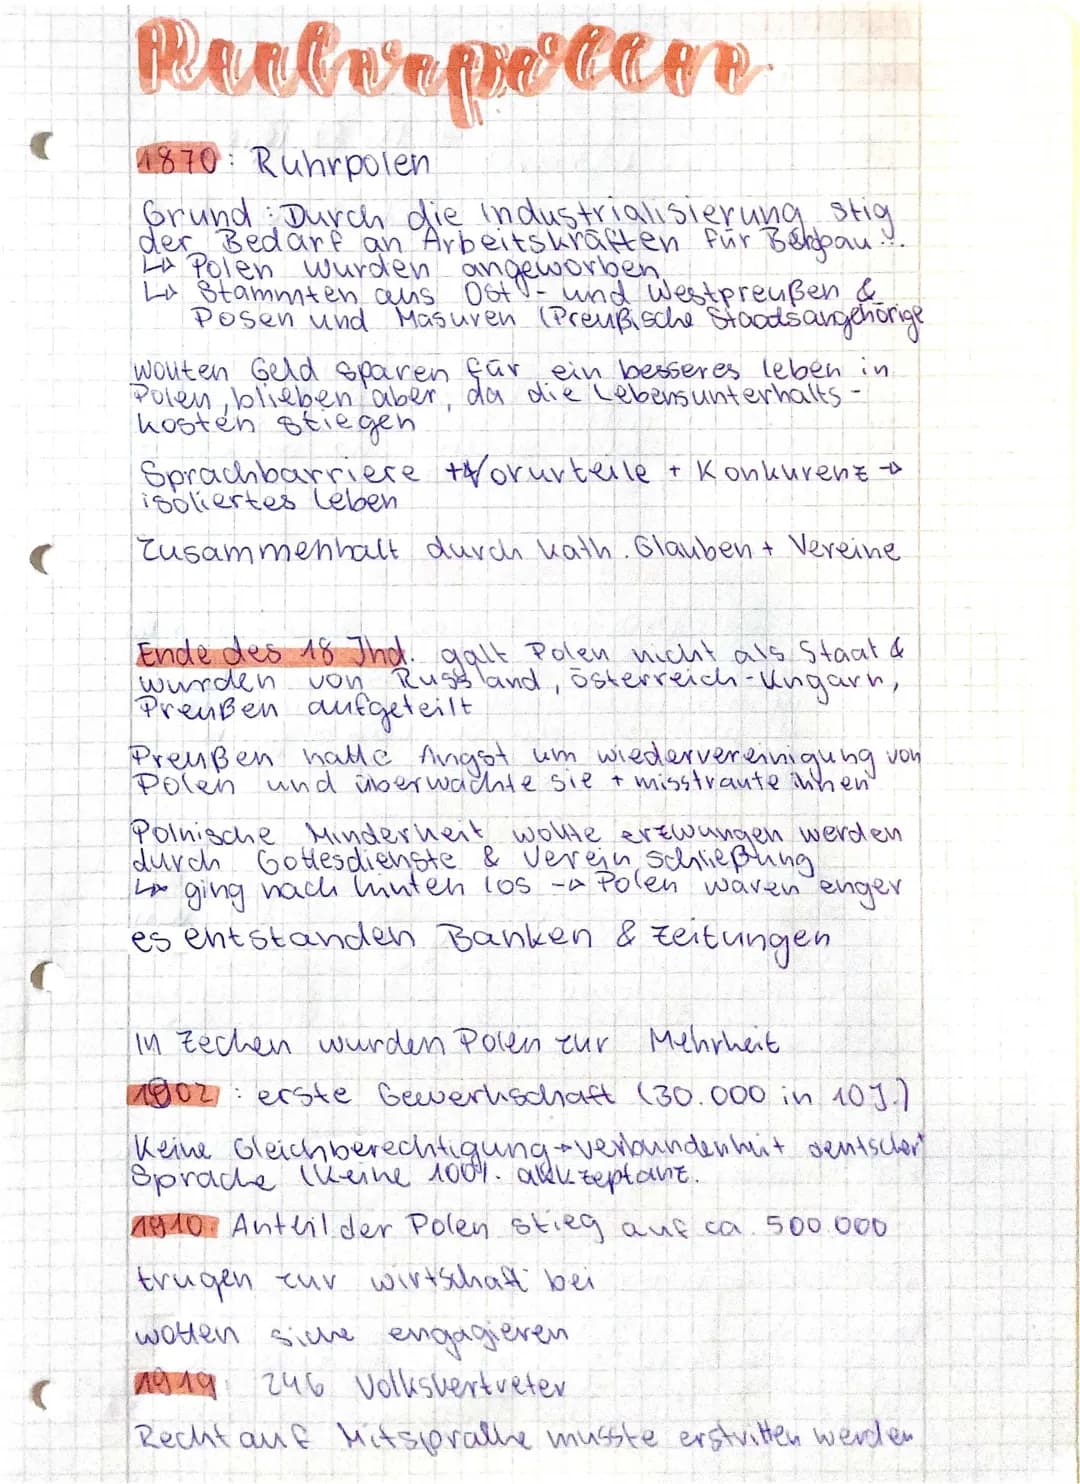 Ruhrpolen
1870: Ruhrpolen
Grund: Durch die Industrialisierung stig
der Bedarf an Arbeitskräften für Bergbau...
↳ Polen wurden angeworben
↳ Stammten aus Ost- und Westpreußen &
Posen und Masuren (Preußische Staadsangehörige
wollten Geld sparen für ein besseres leben in
Polen, blieben aber, da die Lebensunterhalts-
kosten stiegen
Sprachbarriere + Vorurteile + Konkurenz →
isoliertes Leben
Zusammenhalt durch kath. Glauben + Vereine
Ende des 18 Jhd. galt Polen nicht als Staat &
wurden von Russland, Österreich-Ungarn,
Preußen aufgeteilt
Preußen hatte Angst um wiedervereinigung von
Polen und überwachte sie + misstraute ihnen
Polnische Minderheit wollte erzwungen werden
durch Gottesdienste & Verein Schließung
↳ ging nach hinten los → Polen waren enger
es entstanden Banken & Zeitungen
In Zechen wurden Polen zur Mehrheit
1902: erste Gewerkschaft (30.000 in 10J.)
Keine Gleichberechtigung → verbundenheit deutscher
Sprache (Keine 100%. akkzeptanz.
1910: Anteil der Polen stieg auf ca. 500.000
trugen zur wirtschaft bei
wollen siche engagieren
1919: 246 Volksvertreter
Recht auf Mitsprache musste erstritten werden